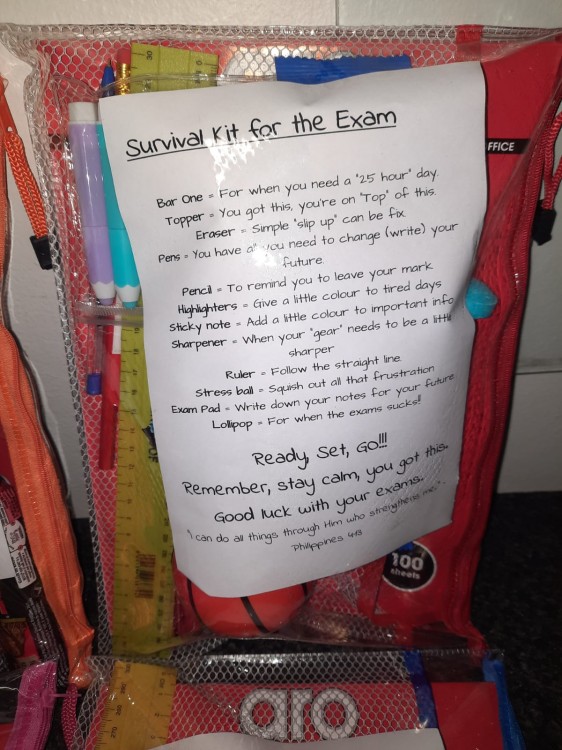 Survival Kit for the Exam
Bar One = For when you need a "25 hour" day.
Topper = You got this, you're on "Top" of this.
Eraser = Simple "slip up" can be fix
Pens = You have all you need to change (write) your
future.
Pencil = To remind you to leave your mark
Highlighters = Give a little colour to tired days
Sticky note = Add a little colour to important info
Sharpener = When your "gear" needs to be a little
sharper
Ruler = Follow the straight line.
Stress ball = Squish out all that frustration
Exam Pad = Write down your notes for your future
Lollipop = For when the exams sucks!!
Ready, Set, GO!!!
Remember, stay calm, you got this.
Good luck with your exams.
"I can do all things through Him who strengthens me."
Philippines 4:13
FFICE
100
sheets
aro